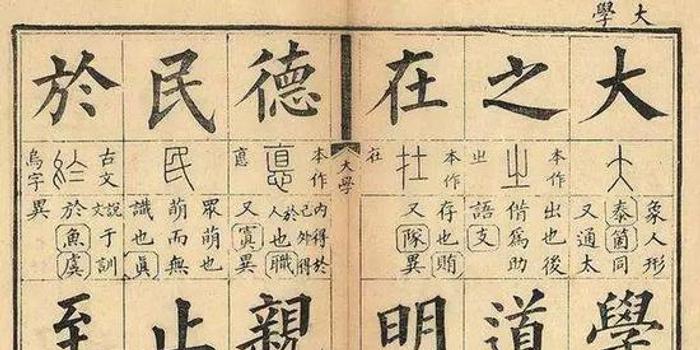 大學
大
象人形
泰箇同
又通太
學
之
本作
㞢
出也後
借爲助
語支
道
在
本作
在
存也賄
又隊異
明
大學
德
本作
悳
內得於
己外得
於人也職
又寘異
親
民
眾萌也
萌而無
識也眞
止
於
古文
烏字
說文于訓
於魚虞
異
至